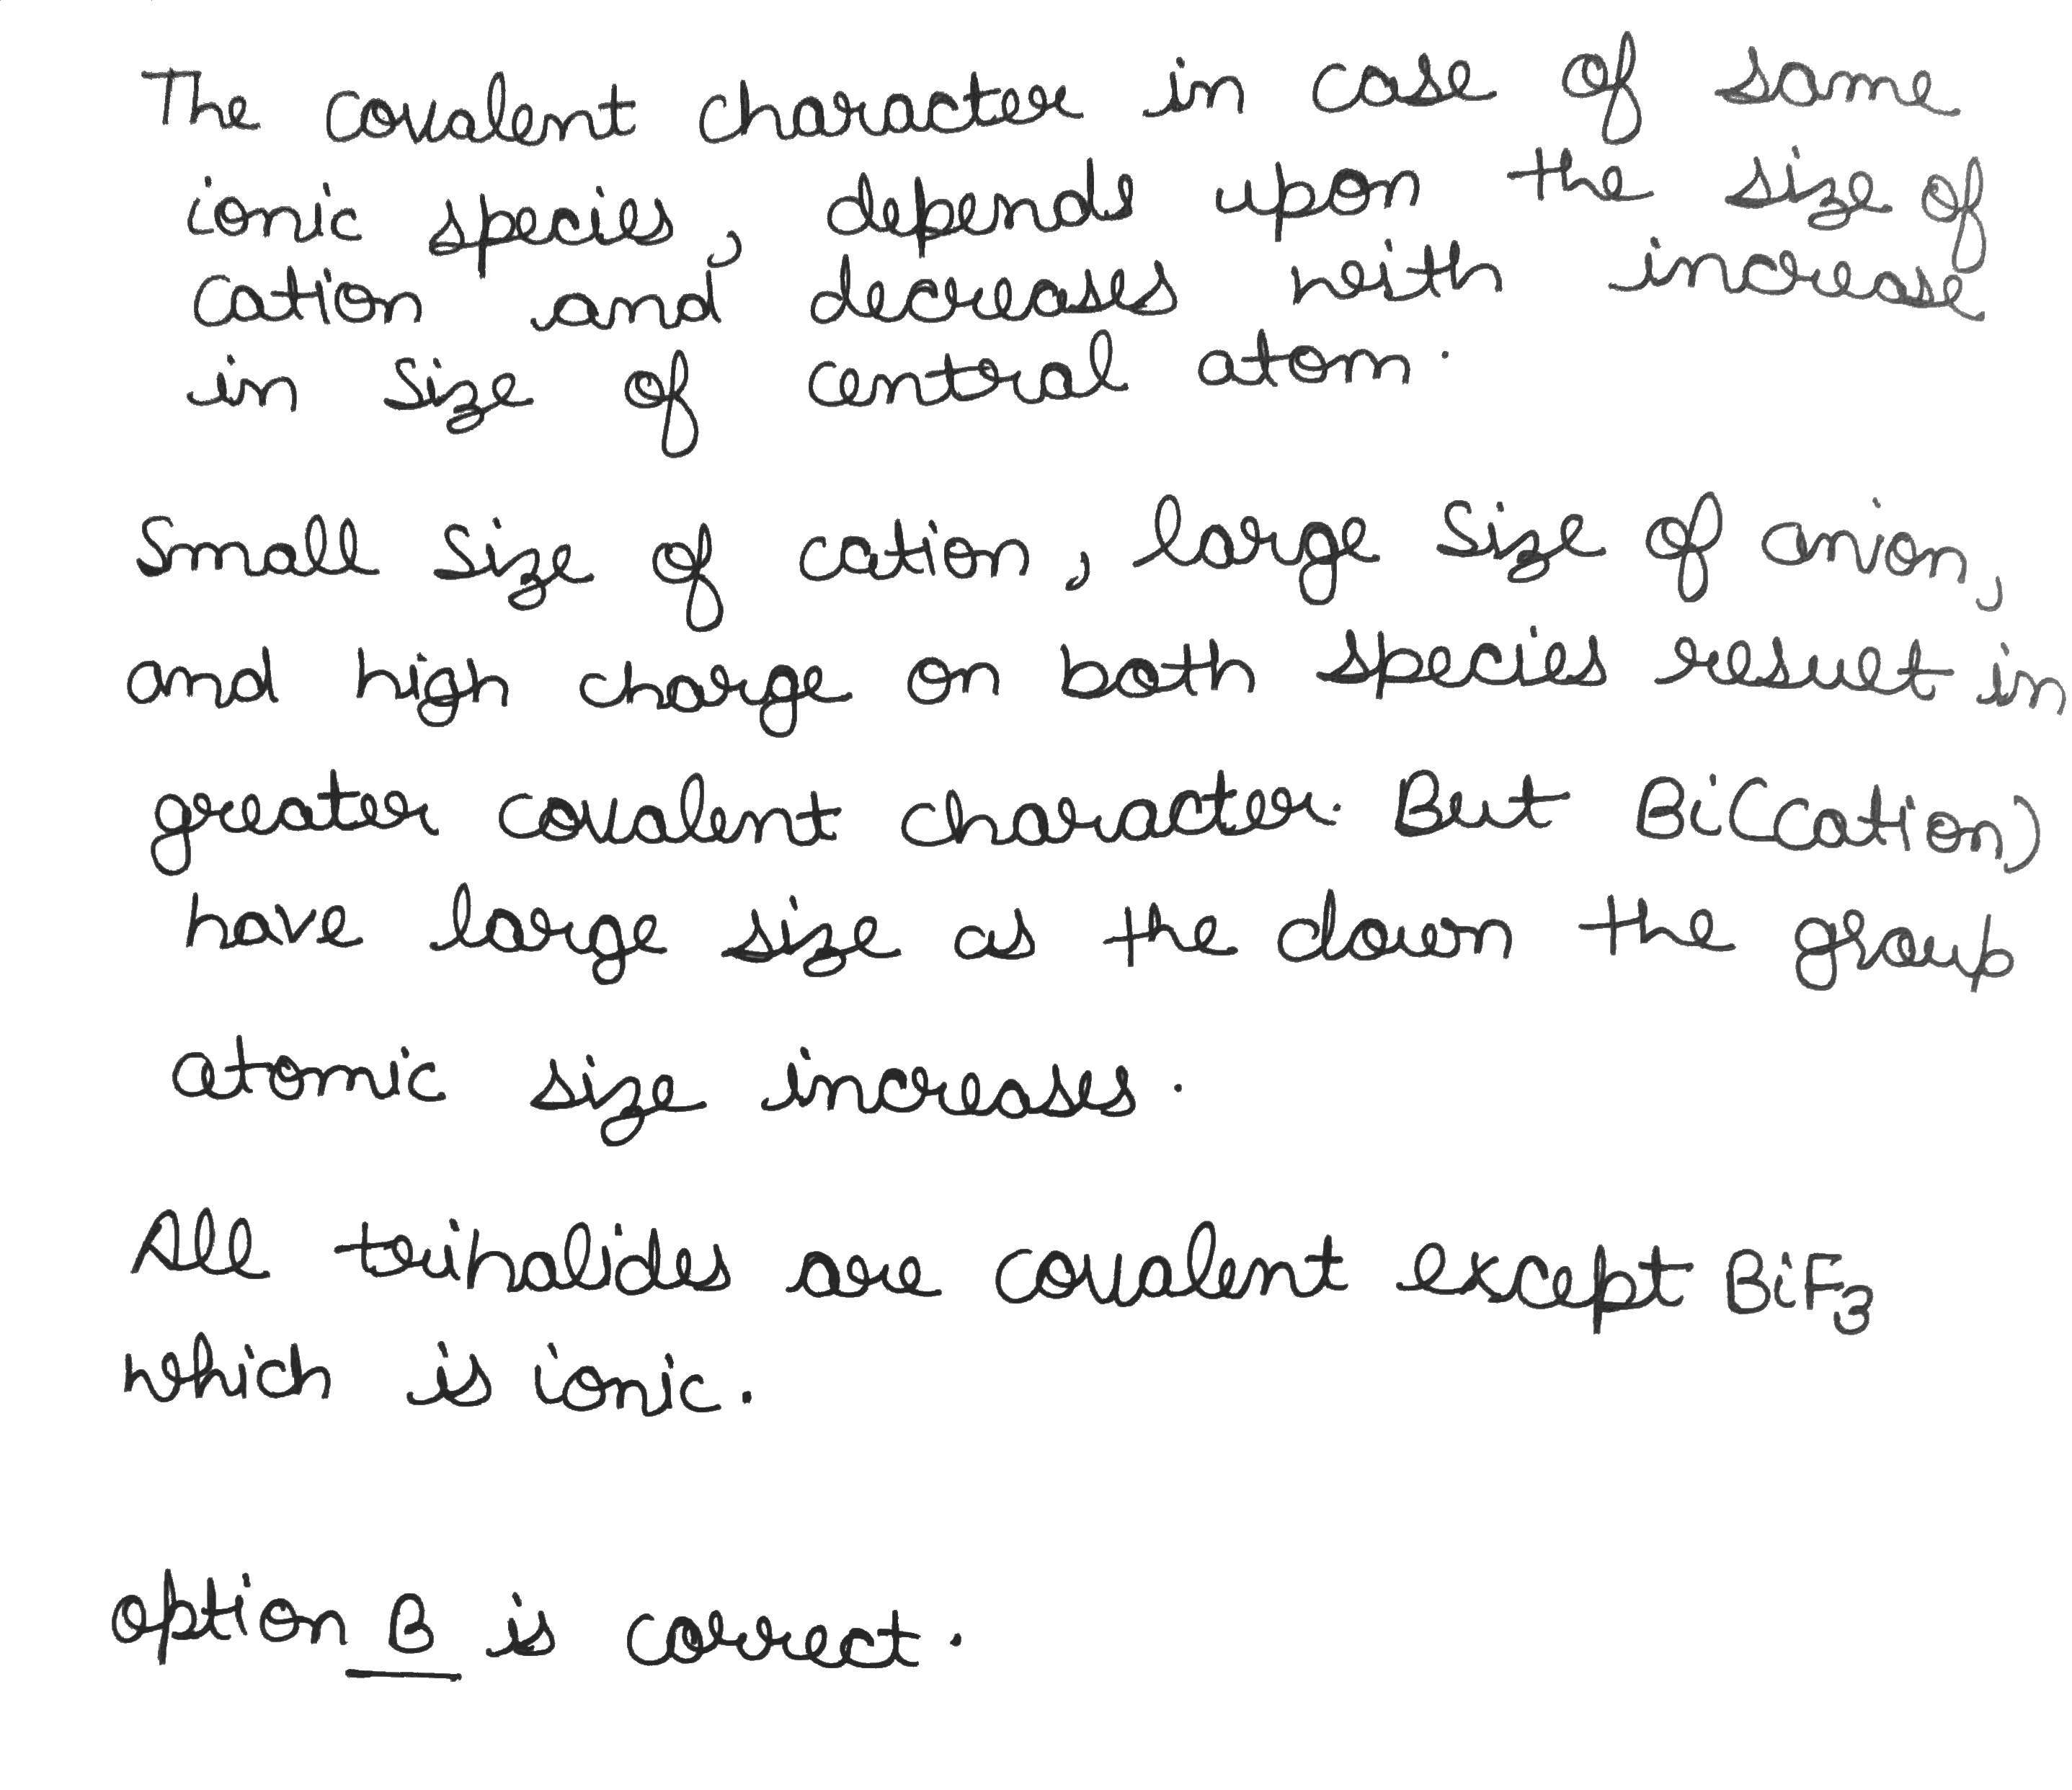 The covalent character in case of same
ionic species, depends upon the size of
cation and decreases with increase
in size of central atom.
Small size of cation, large size of anion,
and high charge on both species result in
greater covalent character. But Bi(cation)
have large size as the down the group
atomic size increases.
All trihalides are covalent except BiF3
which is ionic.
option B is correct.